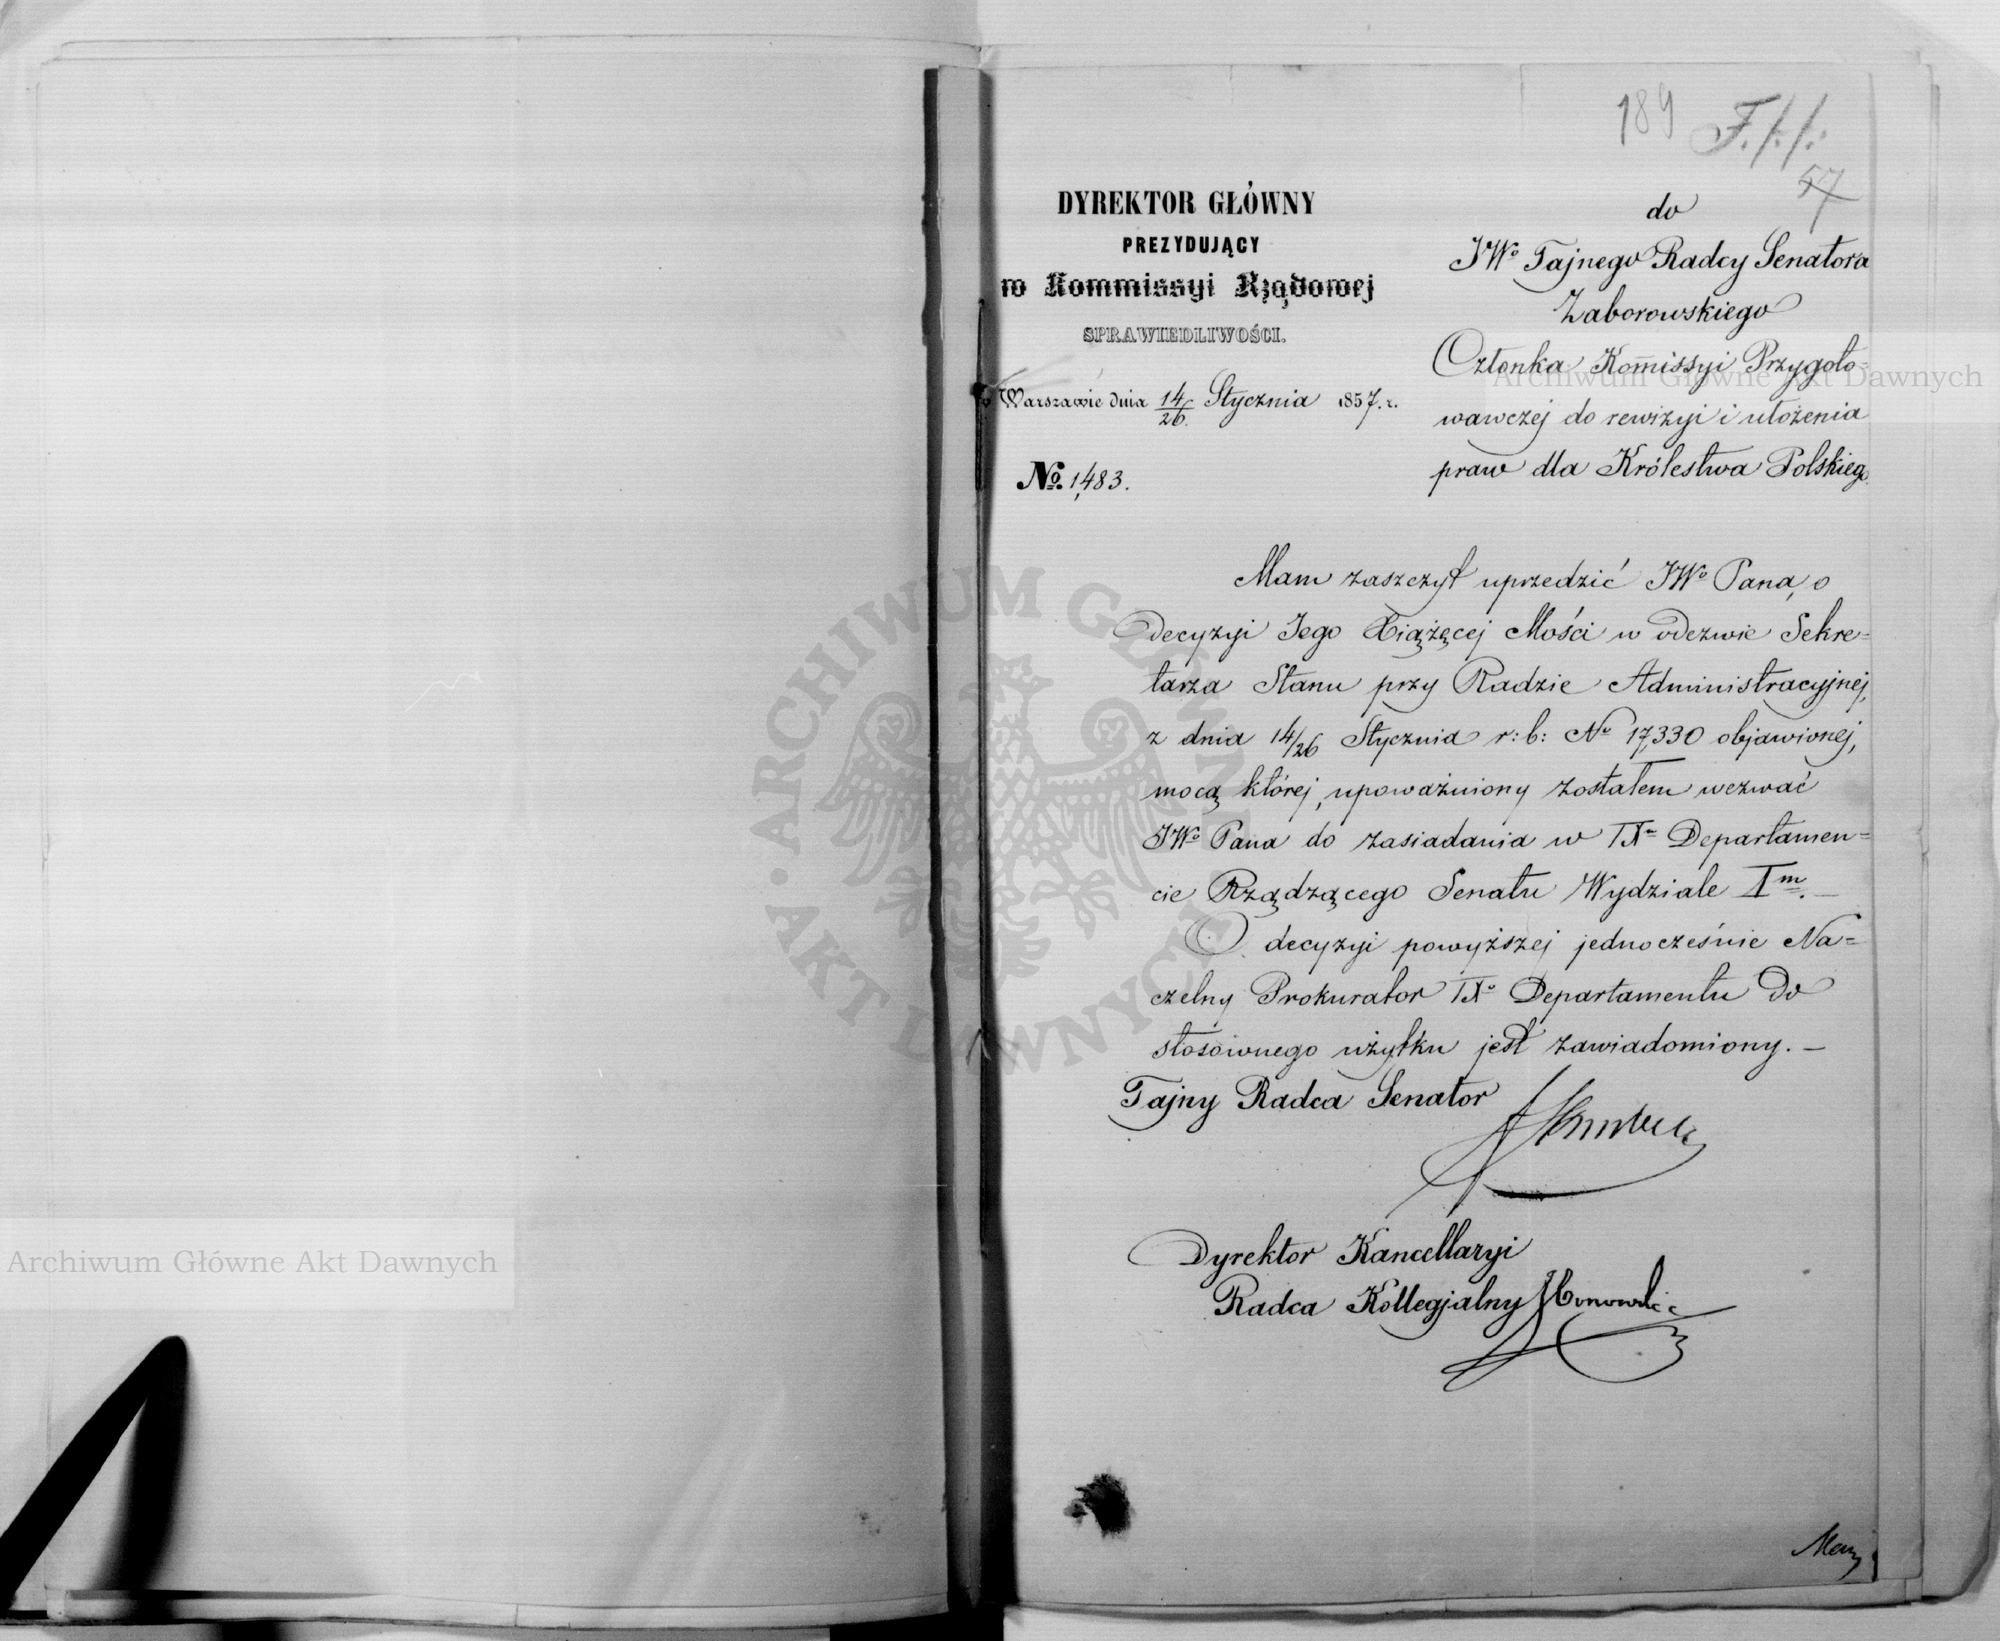 189
57
DYREKTOR GŁÓWNY
PREZYDUJĄCY
w Kommissyi Rządowej
SPRAWIEDLIWOŚCI.
w Warszawie dnia 14/26 Stycznia 1857. r.
No. 1,483.
do
JWo Tajnego Radcy Senatora
Zaborowskiego
Członka Kom̅issyi Przygoto=
wawczej do rewizyi i ułożenia
praw dla Królestwa Polskieg
Mam zaszczyt uprzedzić JWo Pana, o
Decyzyi Jego Xiążęcej Mości w odezwie Sekre=
tarza Stanu przy Radzie Administracyjnej,
z dnia 14/26 Stycznia r: b: No 17,330 objawionej,
mocą której, upoważniony zostałem wezwać
JWo Pana do zasiadania w IXm Departamen=
cie Rządzącego Senatu Wydziale Im. —
O decyzyi powyższej jednocześnie Na=
czelny Prokurator IXo Departamentu do
stosownego użytku jest zawiadomiony. —
Tajny Radca Senator
Dyrektor Kancellaryi
Radca Kollegjalny
Archiwum Główne Akt Dawnych
Archiwum Główne Akt Dawnych
ARCHIWUM GŁÓWNE AKT DAWNYCH